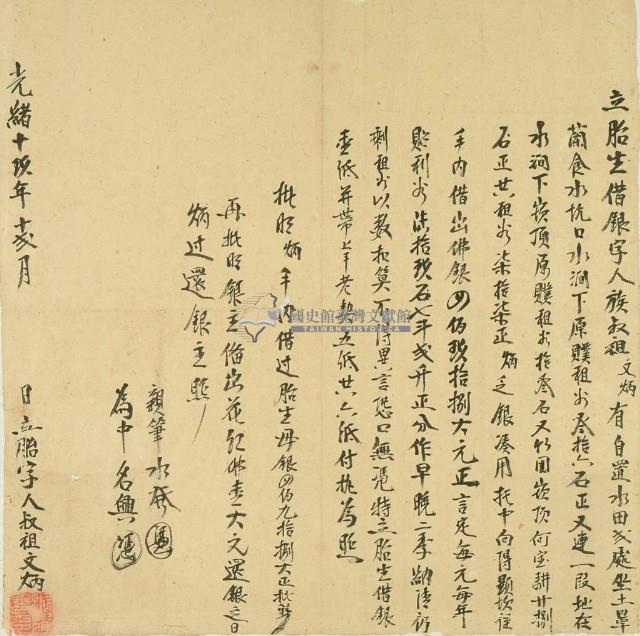 立胎生借銀字人族叔祖文炳有自置水田弍處坐土罩
蘭食水坑口水澗下原贌租谷叁拾六石正又連一段地在
水澗下崁頂原贌租谷拾叁石又竹圍崁頂何宝耕廿捌
石正共租谷柒拾柒正炳乏銀湊用托中向得顯坎
手內借出佛銀四佰玖拾捌大元正言定每元每年
貼利谷 石七斗弍升正分作早晚二季
剩租谷以數扣算不得異言恐口無憑特立胎生借銀
壹紙并帶上手老契五紙共六紙付執為照
批明炳手內借过胎生母銀四佰九拾捌大正批照
再批明銀主備出花紅佛壹大元還銀之日
炳过還銀主照
親筆水發
為中名興 憑
光緒十玖年十弍月 日立胎字人叔祖文炳
國史館臺灣文獻館
TAIWAN HISTORICA